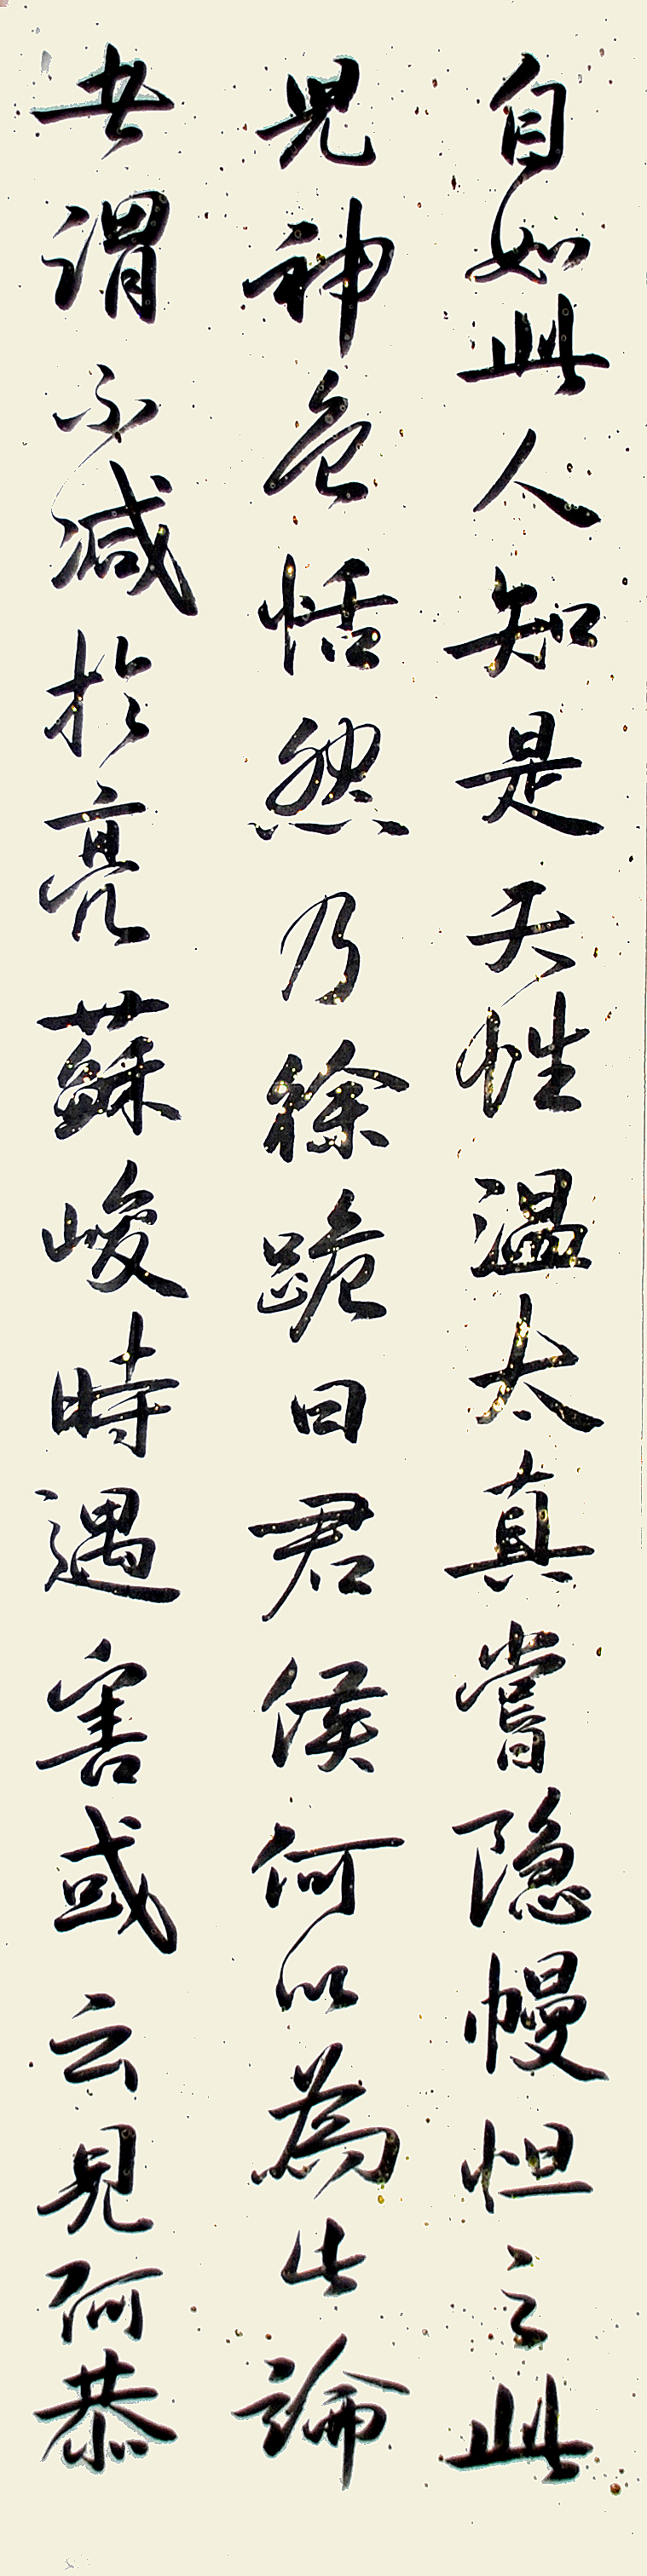 自如此人知是天性温太真嘗隐幔怛之此
児神色恬然乃徐跪曰君侯何以為此論
者謂不減於亮蘇峻時遇害或云見阿恭